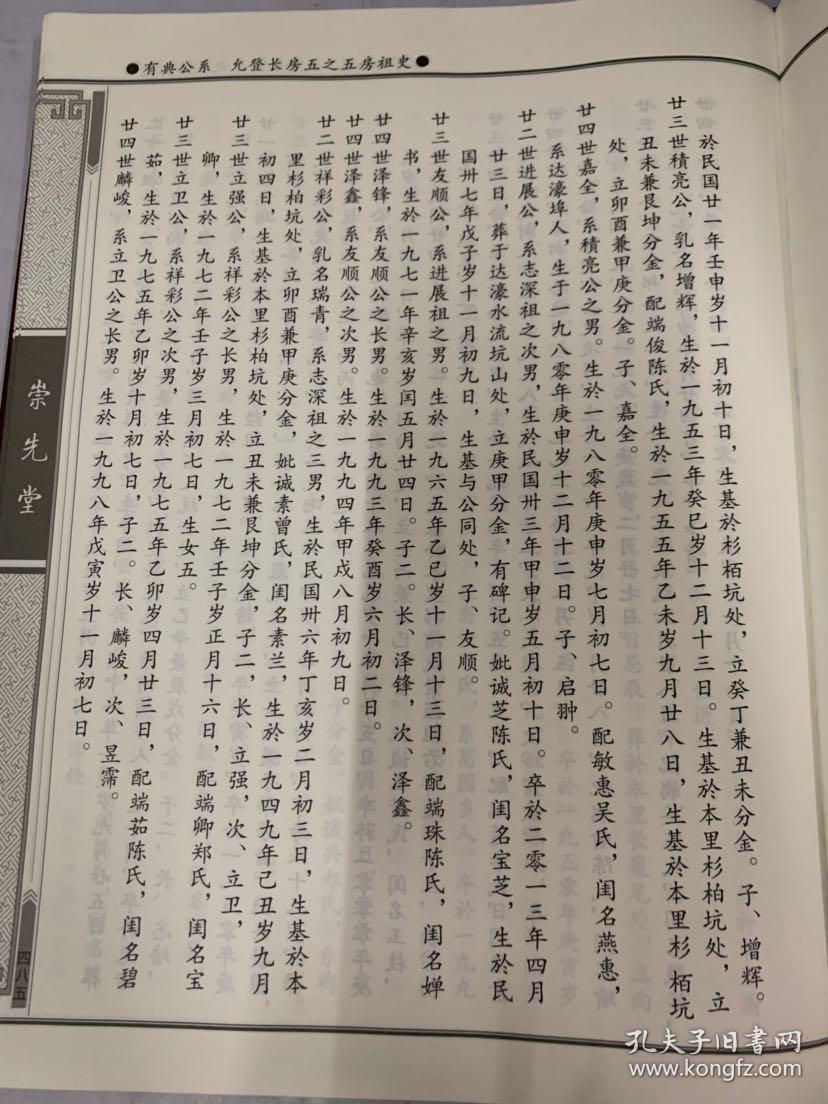 ●有典公系　允登长房五之五房祖史●
於民国廿一年壬申岁十一月初十日，生基於杉栢坑处，立癸丁兼丑未分金。子、增辉。
廿三世積亮公，乳名增辉，生於一九五三年癸巳岁十二月十三日。生基於本里杉柏坑处，立
丑未兼艮坤分金，配端俊陈氏，生於一九五五年乙未岁九月廿八日，生基於本里杉栢坑
处，立卯酉兼甲庚分金。子、嘉全。
廿四世嘉全，系積亮公之男。生於一九八零年庚申岁七月初七日。配敏惠吴氏，闺名燕惠，
系达濠埠人，生于一九八零年庚申岁十二月十二日。子、启翀。
廿二世进展公，系志深祖之次男，生於民国卅三年甲申岁五月初十日。卒於二零一三年四月
廿三日，葬于达濠水流坑山处，立庚甲分金，有碑记。妣诚芝陈氏，闺名宝芝，生於民
国卅七年戊子岁十一月初九日，生基与公同处，子、友顺。
廿三世友顺公，系进展祖之男。生於一九六五年乙巳岁十一月十三日，配端珠陈氏，闺名婵
书，生於一九七一年辛亥岁闰五月廿四日。子二。长、泽锋，次、泽鑫。
廿四世泽锋，系友顺公之长男。生於一九九三年癸酉岁六月初二日。
廿四世泽鑫，系友顺公之次男。生於一九九四年甲戌八月初九日。
廿二世祥彩公，乳名瑞青，系志深祖之三男，生於民国卅六年丁亥岁二月初三日，生基於本
里杉柏坑处，立卯酉兼甲庚分金，妣诚素曾氏，闺名素兰，生於一九四九年己丑岁九月
初四日，生基於本里杉柏坑处，立丑未兼艮坤分金，子二，长、立强，次、立卫，
廿三世立强公，系祥彩公之长男，生於一九七二年壬子岁正月十六日，配端卿郑氏，闺名宝
卿，生於一九七二年壬子岁三月初七日，生女五。
廿三世立卫公，系祥彩公之次男，生於一九七五年乙卯岁四月廿三日，配端茹陈氏，闺名碧
茹，生於一九七五年乙卯岁十月初七日，子二。长、麟峻，次、昱霈。
廿四世麟峻，系立卫公之长男。生於一九九八年戊寅岁十一月初七日。
崇先堂
四八五
孔夫子旧书网
www.kongfz.com